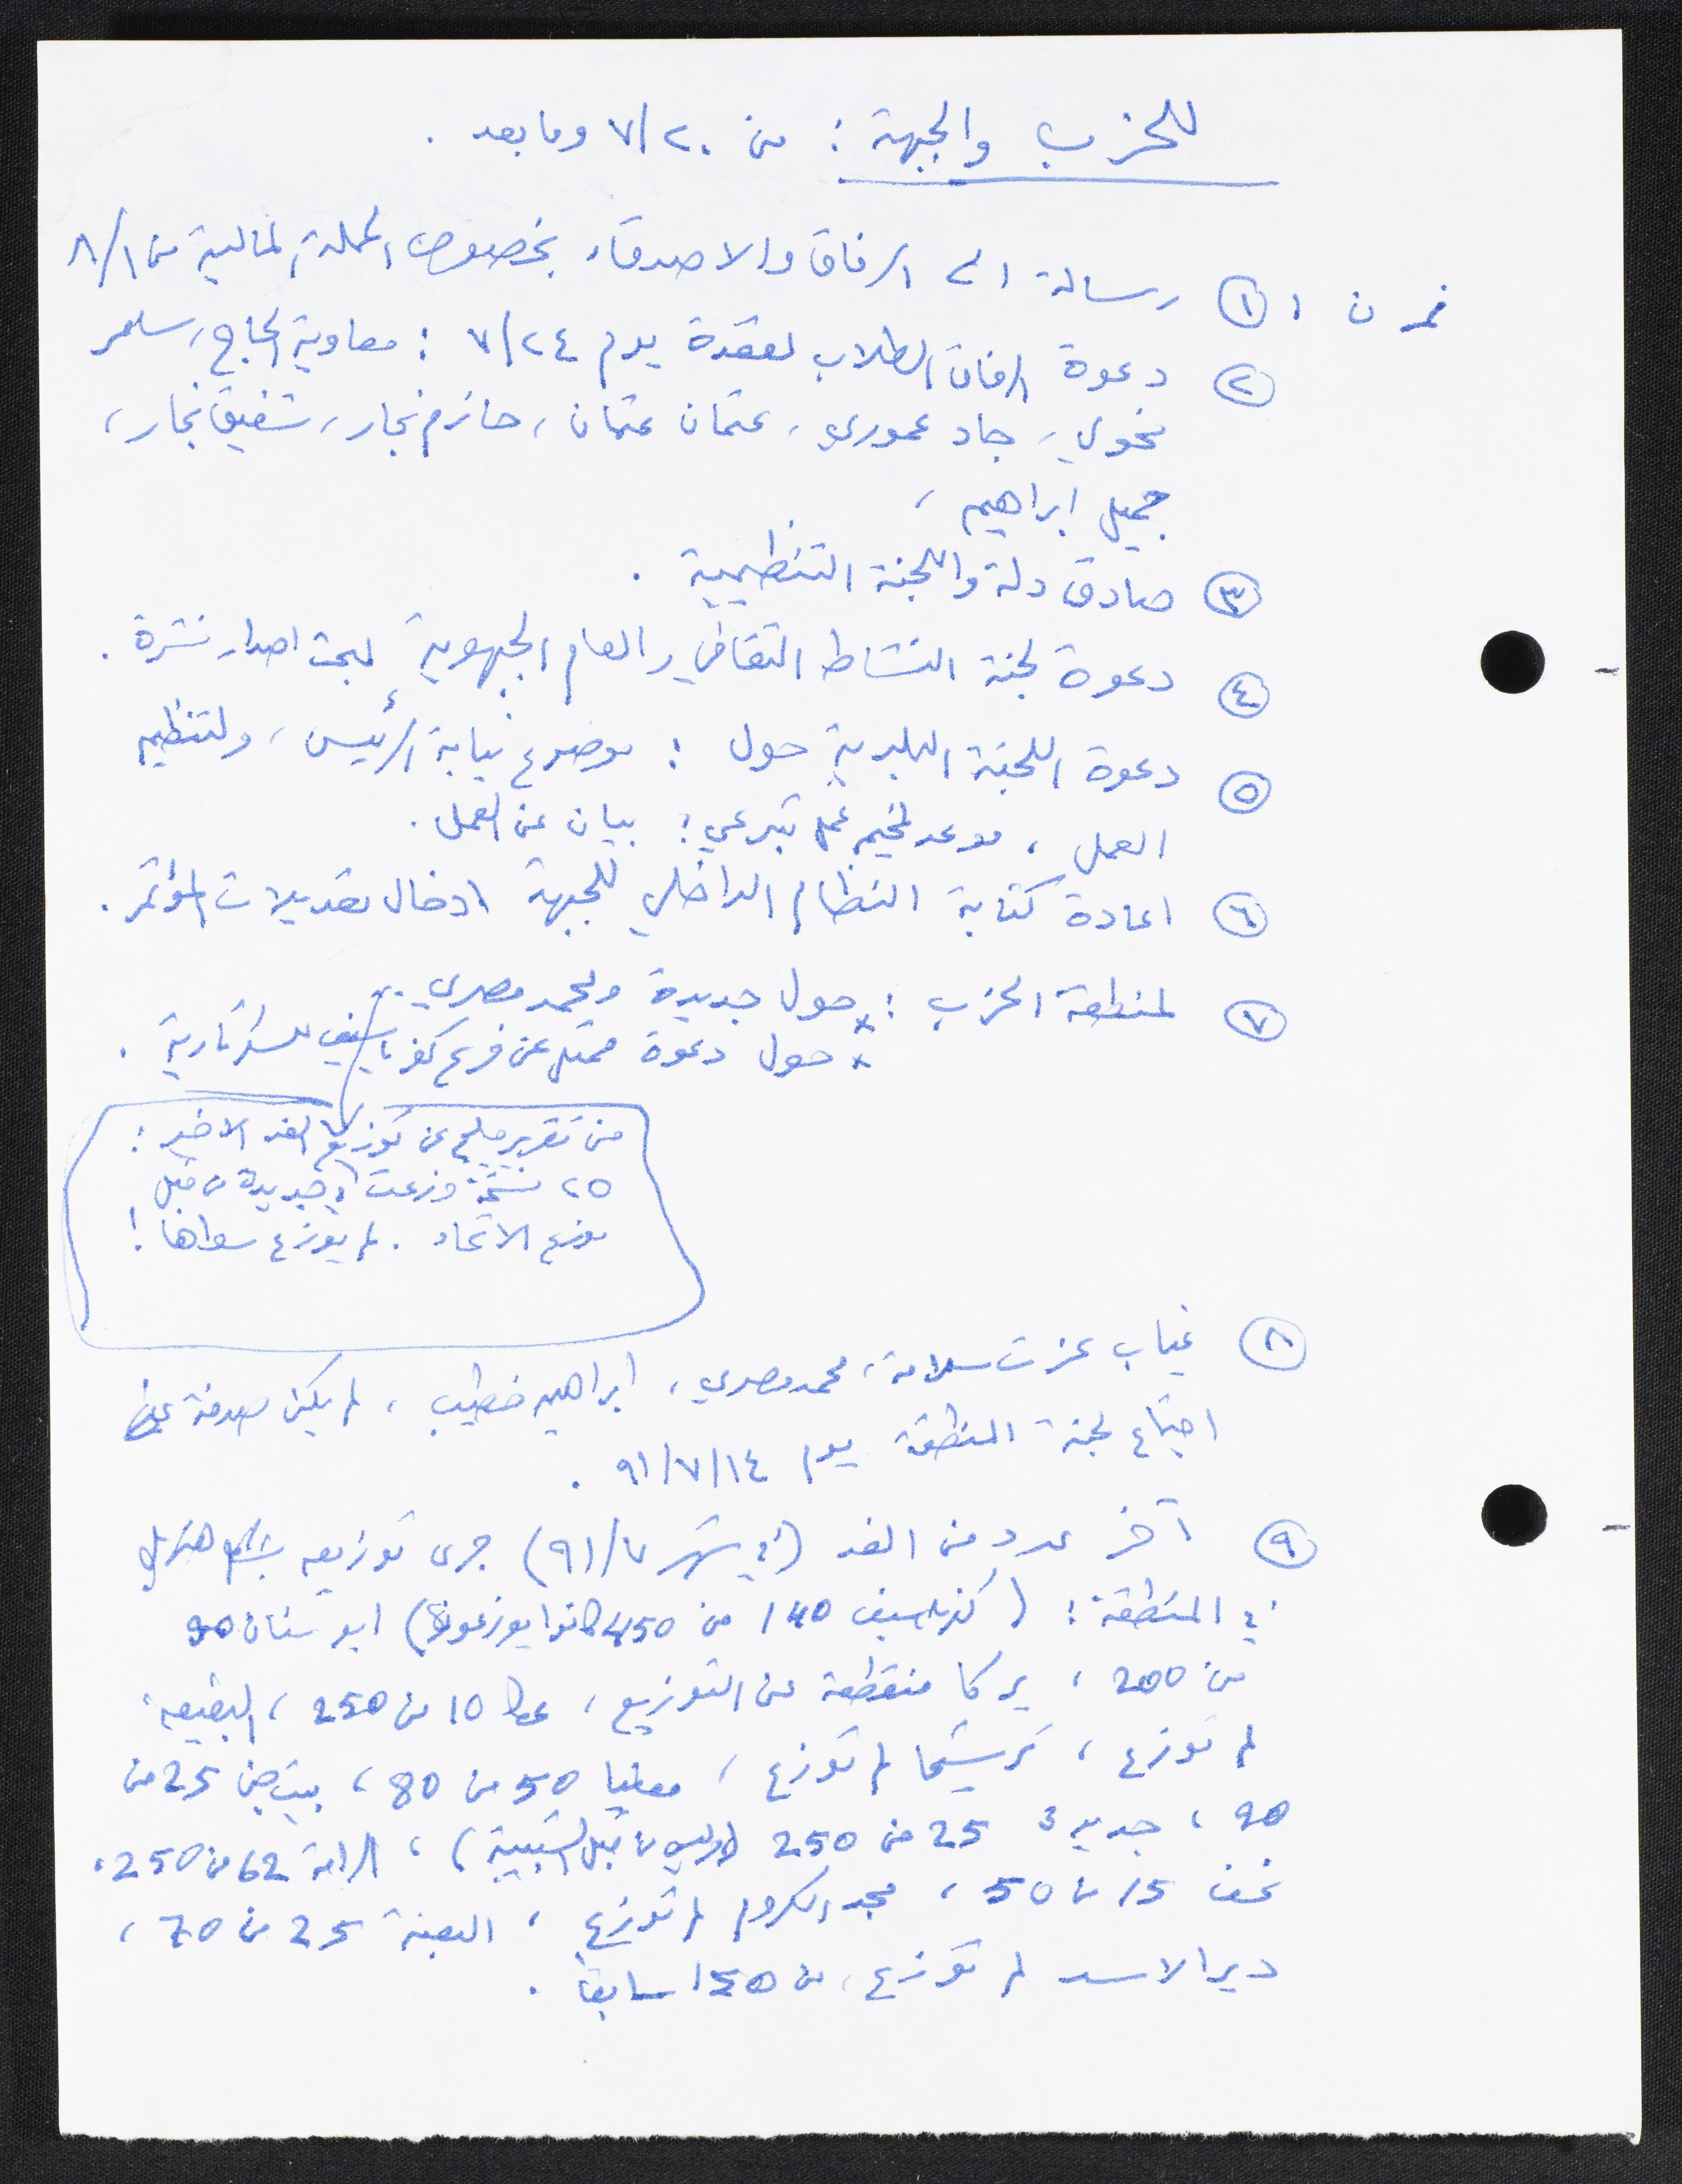 للحزب والجبهة : من ٧/٢٠ وما بعد .
① رسالة الى الرفاق والاصدقاء بخصوص الحملة المالية من ٨/١
② دعوة الرفاق الطلاب لقعدة يوم ٧/٢٤ : معاوية الحاج، سامر
نحوي، جاد عموري، عثمان عثمان، حازم نجار، شفيق نجار،
جميل ابراهيم ،
③ صادق دلة واللجنة التنظيمية .
④ دعوة لجنة النشاط الثقافي والعام الجبهوية لبحث اصدار نشرة .
⑤ دعوة اللجنة البلدية حول : موضوع نيابة الرئيس، ولتنظيم
العمل ، موعد لمخيم عمل تبرعي ؛ بيان عن العمل .
⑥ اعادة كتابة النظام الداخلي للجبهة ادخال تعديلات المؤتمر .
⑦ لمنطقة الحزب : * حول جديدة ومحمد مصري ..
* حول دعوة ممثل عن فرع كفرياسيف للسكرتارية .
من تقرير ملحم عن توزيع الغد الاخير :
٢٥ نسخة وزعت في جديدة من قبل
موزع الاتحاد . لم يوزع سواها !
⑧ غياب عزت سلامة، محمد مصري، ابراهيم خطيب، لم يكن صدفة عن
اجتماع لجنة المنطقة يوم ٩١/٧/١٤ .
⑨ آخر عدد من الغد (في شهر ٩١/٧) جرى توزيعه بشكل هزيل
في المنطقة : (كفرياسيف 140 من 450 كانوا يوزعونها) ابو سنان 90
من 200 ، يركا منقطعة عن التوزيع ، عكا 10 من 250 ، البقيعة
لم توزع ، ترشيحا لم توزع ، معليا 50 من 80 ، بيت جن 25 من
90 ، جديدة 25 من 250 (وليس من قبل الشبيبة) ، الرامة 62 من 250،
نحف 15 من 50 ، مجد الكروم لم توزع ، البعنة 25 من 70 ،
دير الاسد لم توزع، من 150 سابقا .